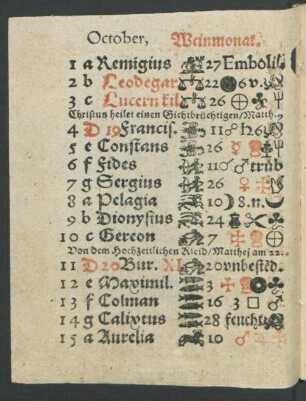 October, Weinmonat.
1 a Remigius 27 Embolis.
2 b Leodegar 22 6 v.
3 c Lucern kil 26
Christus heilet einen Gichtbrüchtigen/Matth. 9
4 D 19 Francis. 11 ☍ ♄ 26
5 e Constans 26 ☿
6 f Fides 11 ☌ ♂ trüb
7 g Sergius 26 ♀
8 a Pelagia 10 ☽ 8. n.
9 b Dionysius 24
10 c Gereon 7
Von dem Hochzeitlichen Kleid/Matthej am 22.
11 D 20 Bur. XI. 20 vnbestēd.
12 e Maximil. 3
13 f Colman 16 3 □ ♂
14 g Calixtus 28 feucht
15 a Aurelia 10 ♂